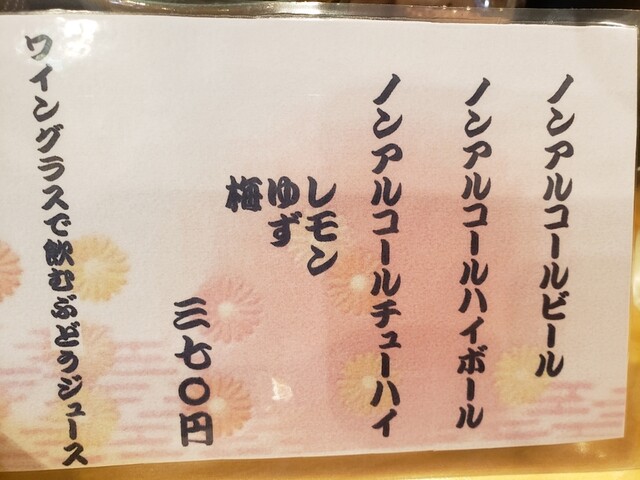 ノンアルコールビール
ノンアルコールハイボール
ノンアルコールチューハイ
レモン
ゆず
梅
三七〇円
ワイングラスで飲むぶどうジュース